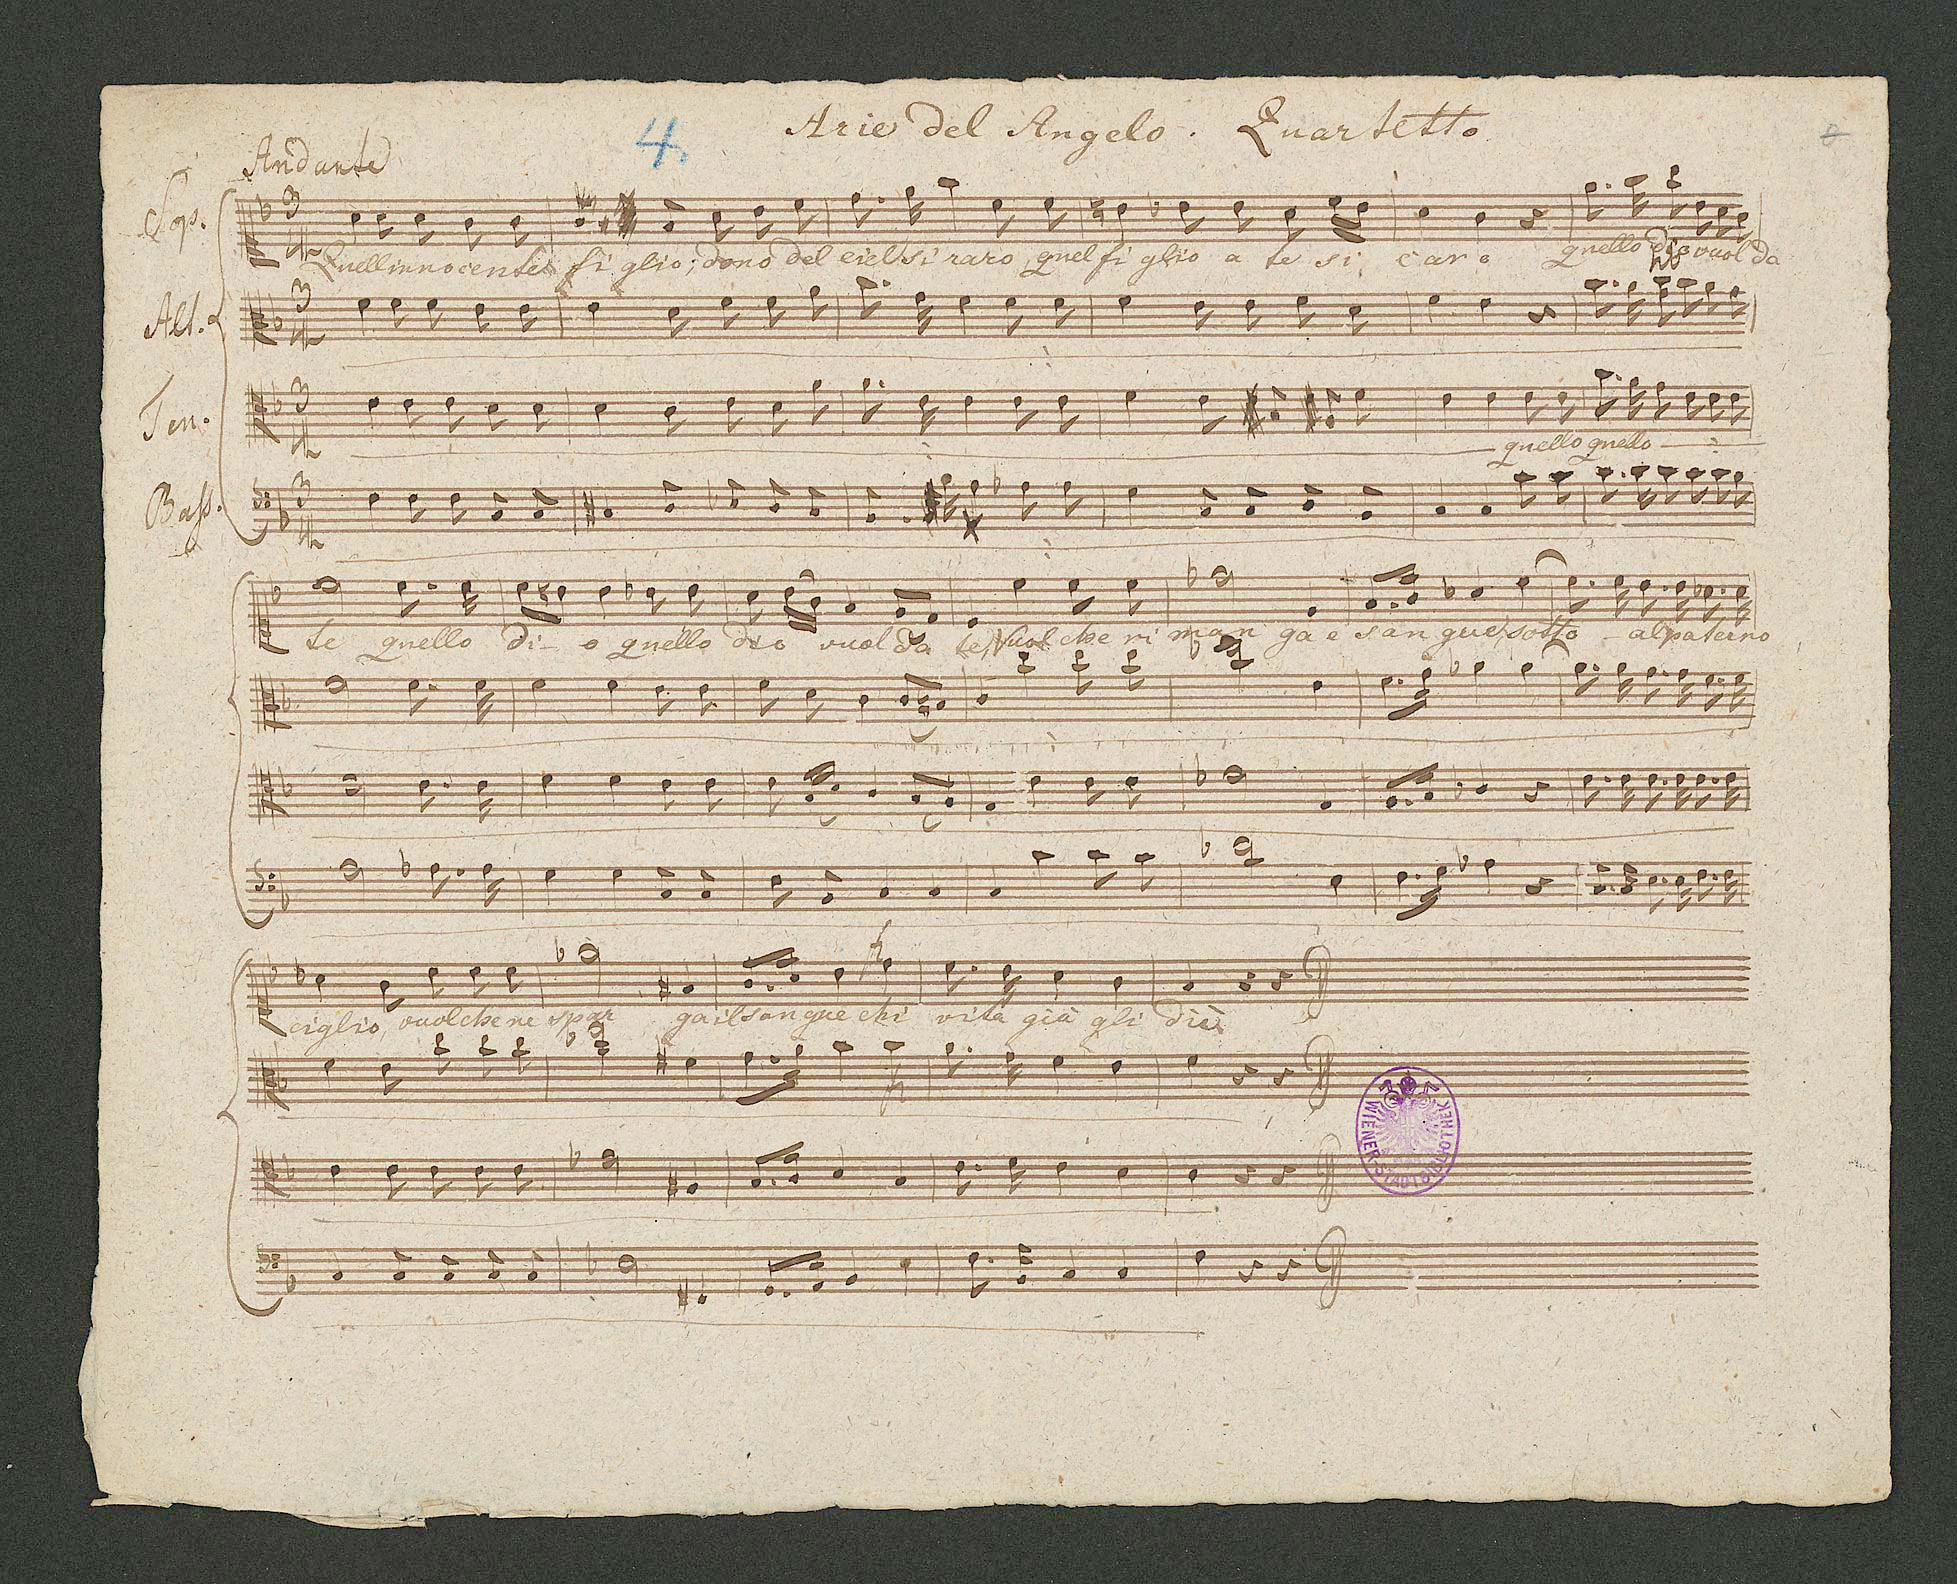 Arie del Angelo. Quartetto
4.
Andante
Sop.
Quell innocente figlio; dono del ciel si raro, quel figlio a te si caro quello dio vuol da
Alt.
Ten.
quello quello
Bass.
te quello di-o quello dio vuol da te, Vuol che rimanga e sangue, sotto al paterno
ciglio, vuol che ne sparga il sangue chi vita già gli diè
WIENER STADTBIBLIOTHEK